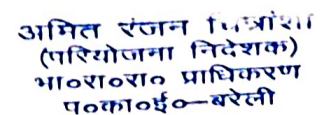 अमित रंजन चित्रांशी
(परियोजना निदेशक)
भा०रा०रा० प्राधिकरण
प०का०ई०—बरेली